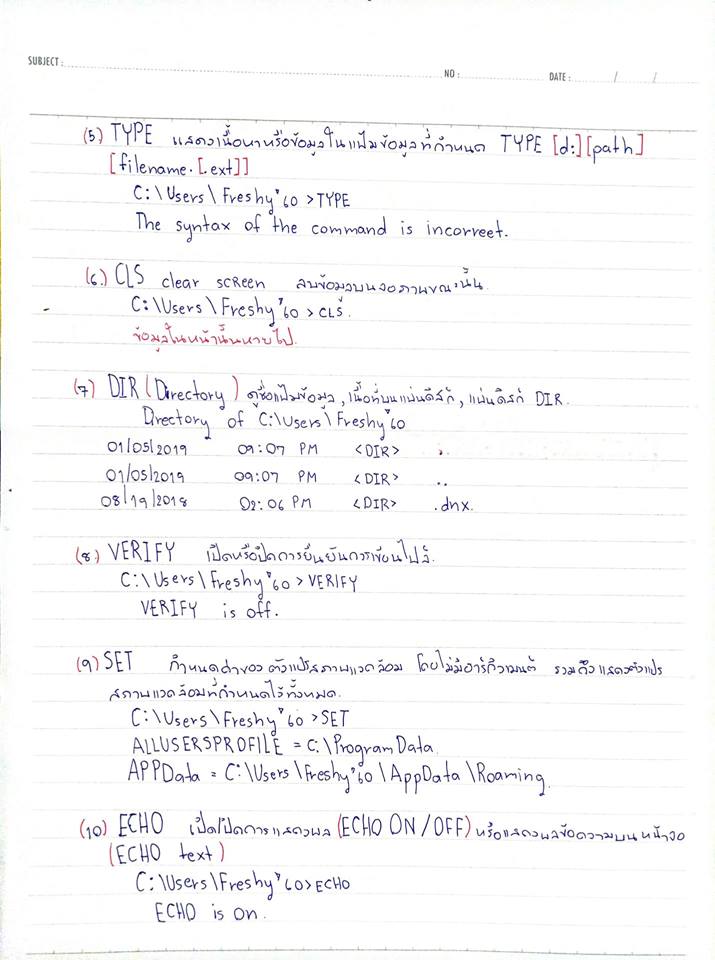 SUBJECT :
NO :
DATE : / /
(5) TYPE แสดงเนื้อหาหรือข้อมูลในแฟ้มข้อมูลที่กำหนด TYPE [d:][path]
[filename.[.ext]]
C:\Users\Freshy'60>TYPE
The syntax of the command is incorreet.
(6.) CLS clear scReen ลบข้อมูลบนจอภาพขณะนั้น
C:\Users\Freshy'60>CLS.
ข้อมูลในหน้านั้นหายไป.
(7) DIR (Directory) ดูชื่อแฟ้มข้อมูล, เนื้อที่บนแผ่นดิสก์, แผ่นดิสก์ DIR.
Directory of C:\Users\Freshy'60
01/05/2019 09:07 PM <DIR> .
01/05/2019 09:07 PM <DIR> ..
08/19/2018 02:06 PM <DIR> .dnx.
(8.) VERIFY เปิดหรือปิดการยืนยันการเขียนไฟล์.
C:\Users\Freshy'60>VERIFY
VERIFY is off.
(9) SET กำหนดค่าของตัวแปรสภาพแวดล้อม โดยไม่มีอาร์กิวเมนต์ รวมถึงแสดงตัวแปร
สภาพแวดล้อมที่กำหนดไว้ทั้งหมด.
C:\Users\Freshy'60>SET
ALLUSERSPROFILE = C:\ProgramData
APPData = C:\Users\Freshy'60\AppData\Roaming.
(10) ECHO เปิด/ปิดการแสดงผล (ECHO ON/OFF) หรือแสดงผลข้อความบนหน้าจอ
(ECHO text)
C:\Users\Freshy'60>ECHO
ECHO is on.